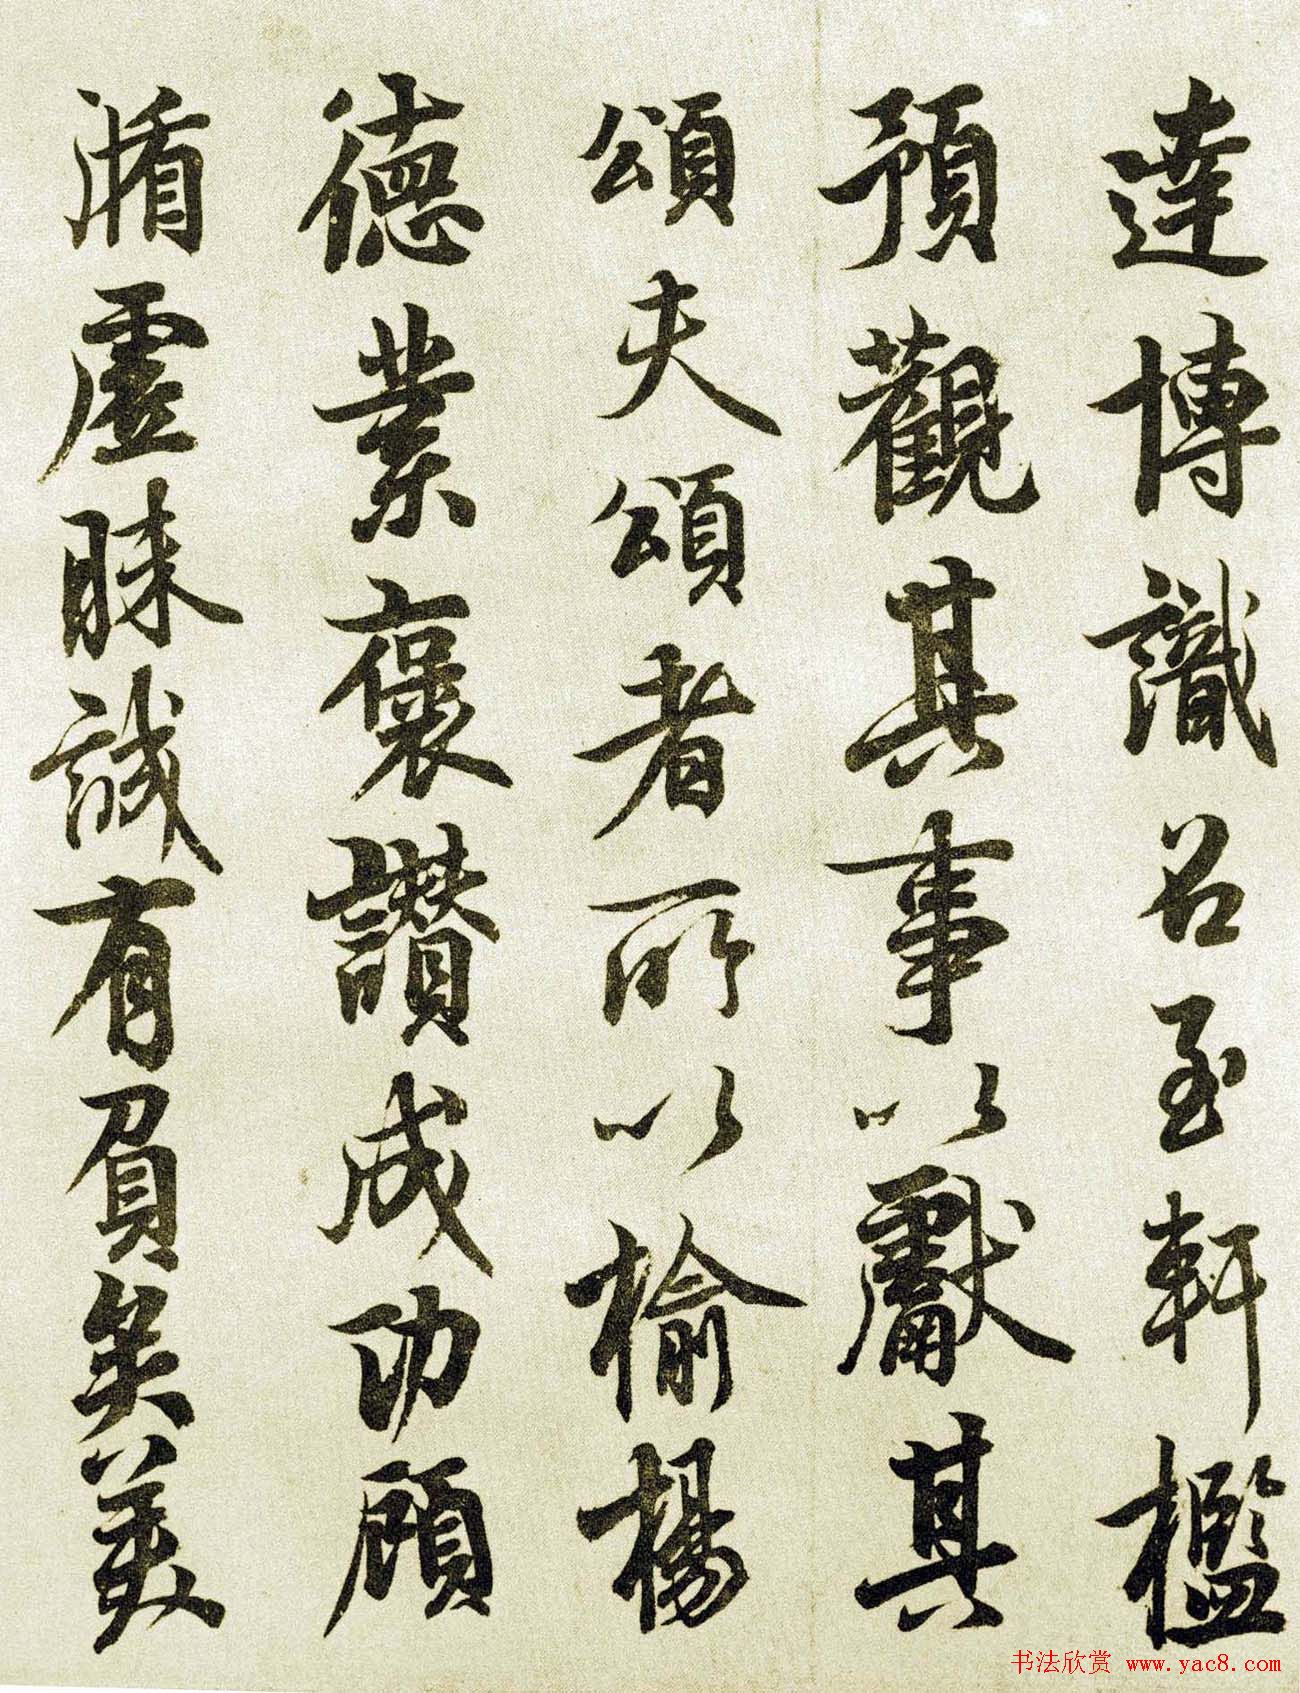 達博識召至軒檻
預觀其事以獻其
頌夫頌者所以揄揚
德業褒讚成功顧
循虛昧誠有負矣美
书法欣赏 www.yac8.com